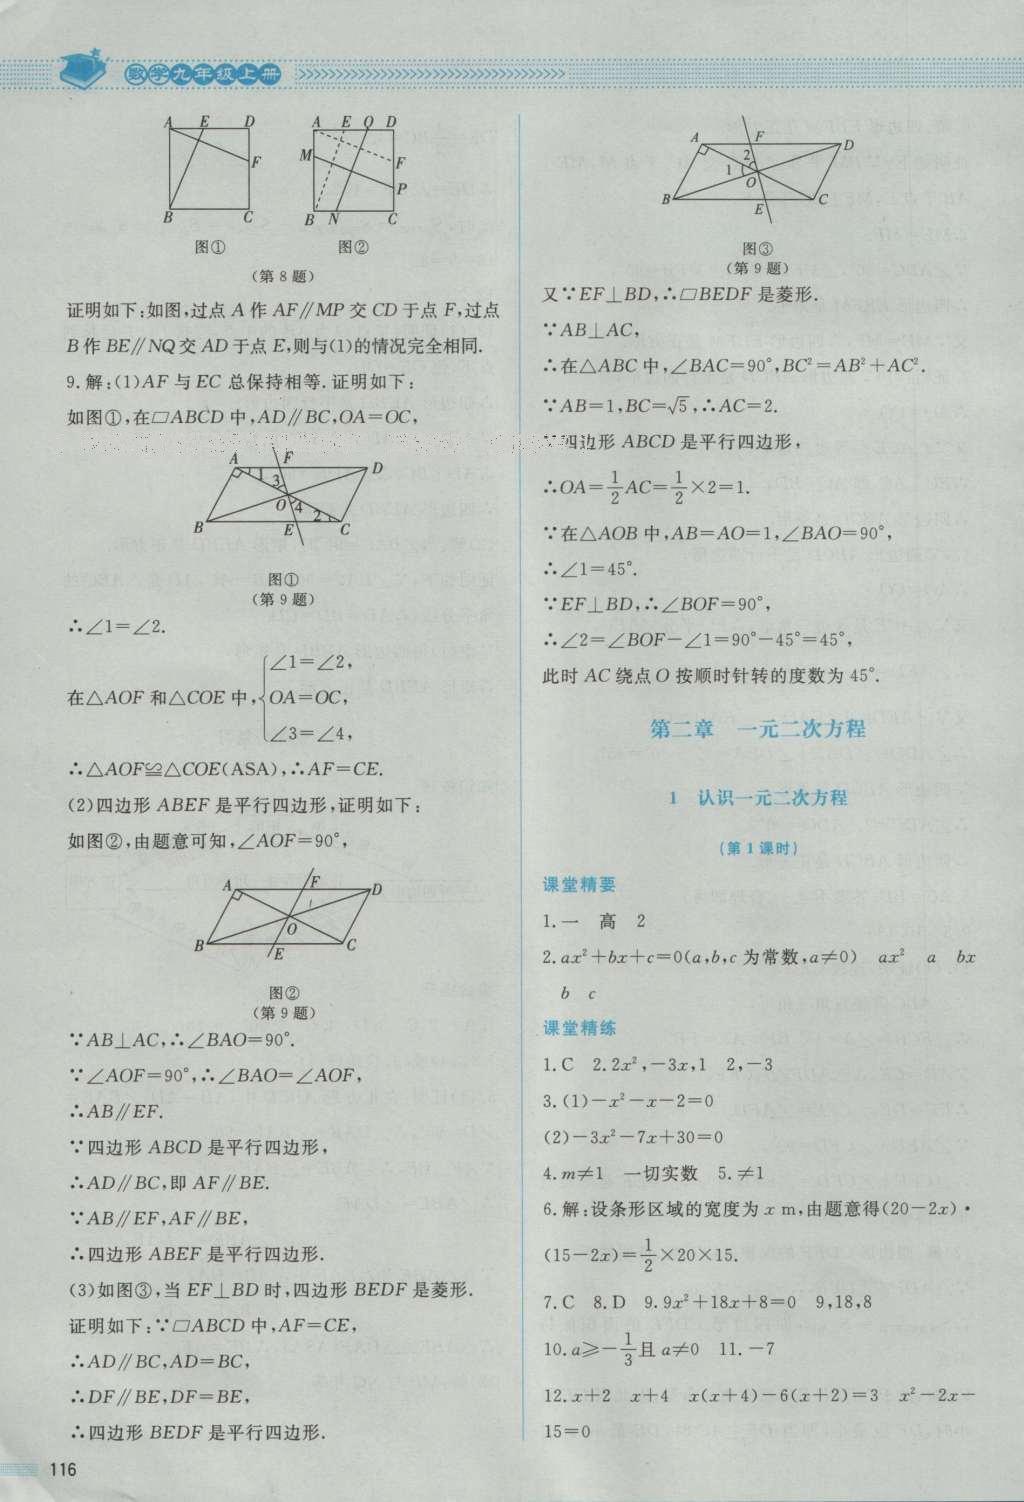 数学九年级上册
A E D
F
B C
图①
A E Q D
M
F
P
B N C
图②
(第8题)
证明如下:如图,过点 A 作 AF∥MP 交 CD 于点 F,过点
B 作 BE∥NQ 交 AD 于点 E,则与(1)的情况完全相同.
9.解:(1)AF 与 EC 总保持相等.证明如下:
如图①,在□ABCD 中,AD∥BC,OA=OC,
A F D
1 3
O 4
2
B E C
图①
(第9题)
∴∠1=∠2.
在△AOF 和△COE 中,{∠1=∠2,
OA=OC,
∠3=∠4,
∴△AOF≌△COE(ASA),∴AF=CE.
(2)四边形 ABEF 是平行四边形,证明如下:
如图②,由题意可知,∠AOF=90°,
A F D
O
B E C
图②
(第9题)
∵AB⊥AC,∴∠BAO=90°.
∵∠AOF=90°,∴∠BAO=∠AOF,
∴AB∥EF.
∵四边形 ABCD 是平行四边形,
∴AD∥BC,即 AF∥BE.
∵AB∥EF,AF∥BE,
∴四边形 ABEF 是平行四边形.
(3)如图③,当 EF⊥BD 时,四边形 BEDF 是菱形.
证明如下:∵□ABCD 中,AF=CE,
∴AD∥BC,AD=BC,
∴DF∥BE,DF=BE,
∴四边形 BEDF 是平行四边形.
116
A F D
2
1
O
B E C
图③
(第9题)
又∵EF⊥BD,∴□BEDF 是菱形.
∵AB⊥AC,
∴在△ABC 中,∠BAC=90°,BC²=AB²+AC².
∵AB=1,BC=√5,∴AC=2.
∵四边形 ABCD 是平行四边形,
∴OA=1/2AC=1/2×2=1.
∵在△AOB 中,AB=AO=1,∠BAO=90°,
∴∠1=45°.
∵EF⊥BD,∴∠BOF=90°,
∴∠2=∠BOF-∠1=90°-45°=45°,
此时 AC 绕点 O 按顺时针转的度数为 45°.
第二章 一元二次方程
1 认识一元二次方程
(第1课时)
课堂精要
1.一 高 2
2.ax²+bx+c=0(a,b,c 为常数,a≠0) ax² a bx
b c
课堂精练
1.C 2.2x²,-3x,1 2,-3
3.(1)-x²-x-2=0
(2)-3x²-7x+30=0
4.m≠1 一切实数 5.≠1
6.解:设条形区域的宽度为 x m,由题意得(20-2x)·
(15-2x)=1/2×20×15.
7.C 8.D 9.9x²+18x+8=0 9,18,8
10.a≥-1/3且 a≠0 11.-7
12.x+2 x+4 x(x+4)-6(x+2)=3 x²-2x-
15=0